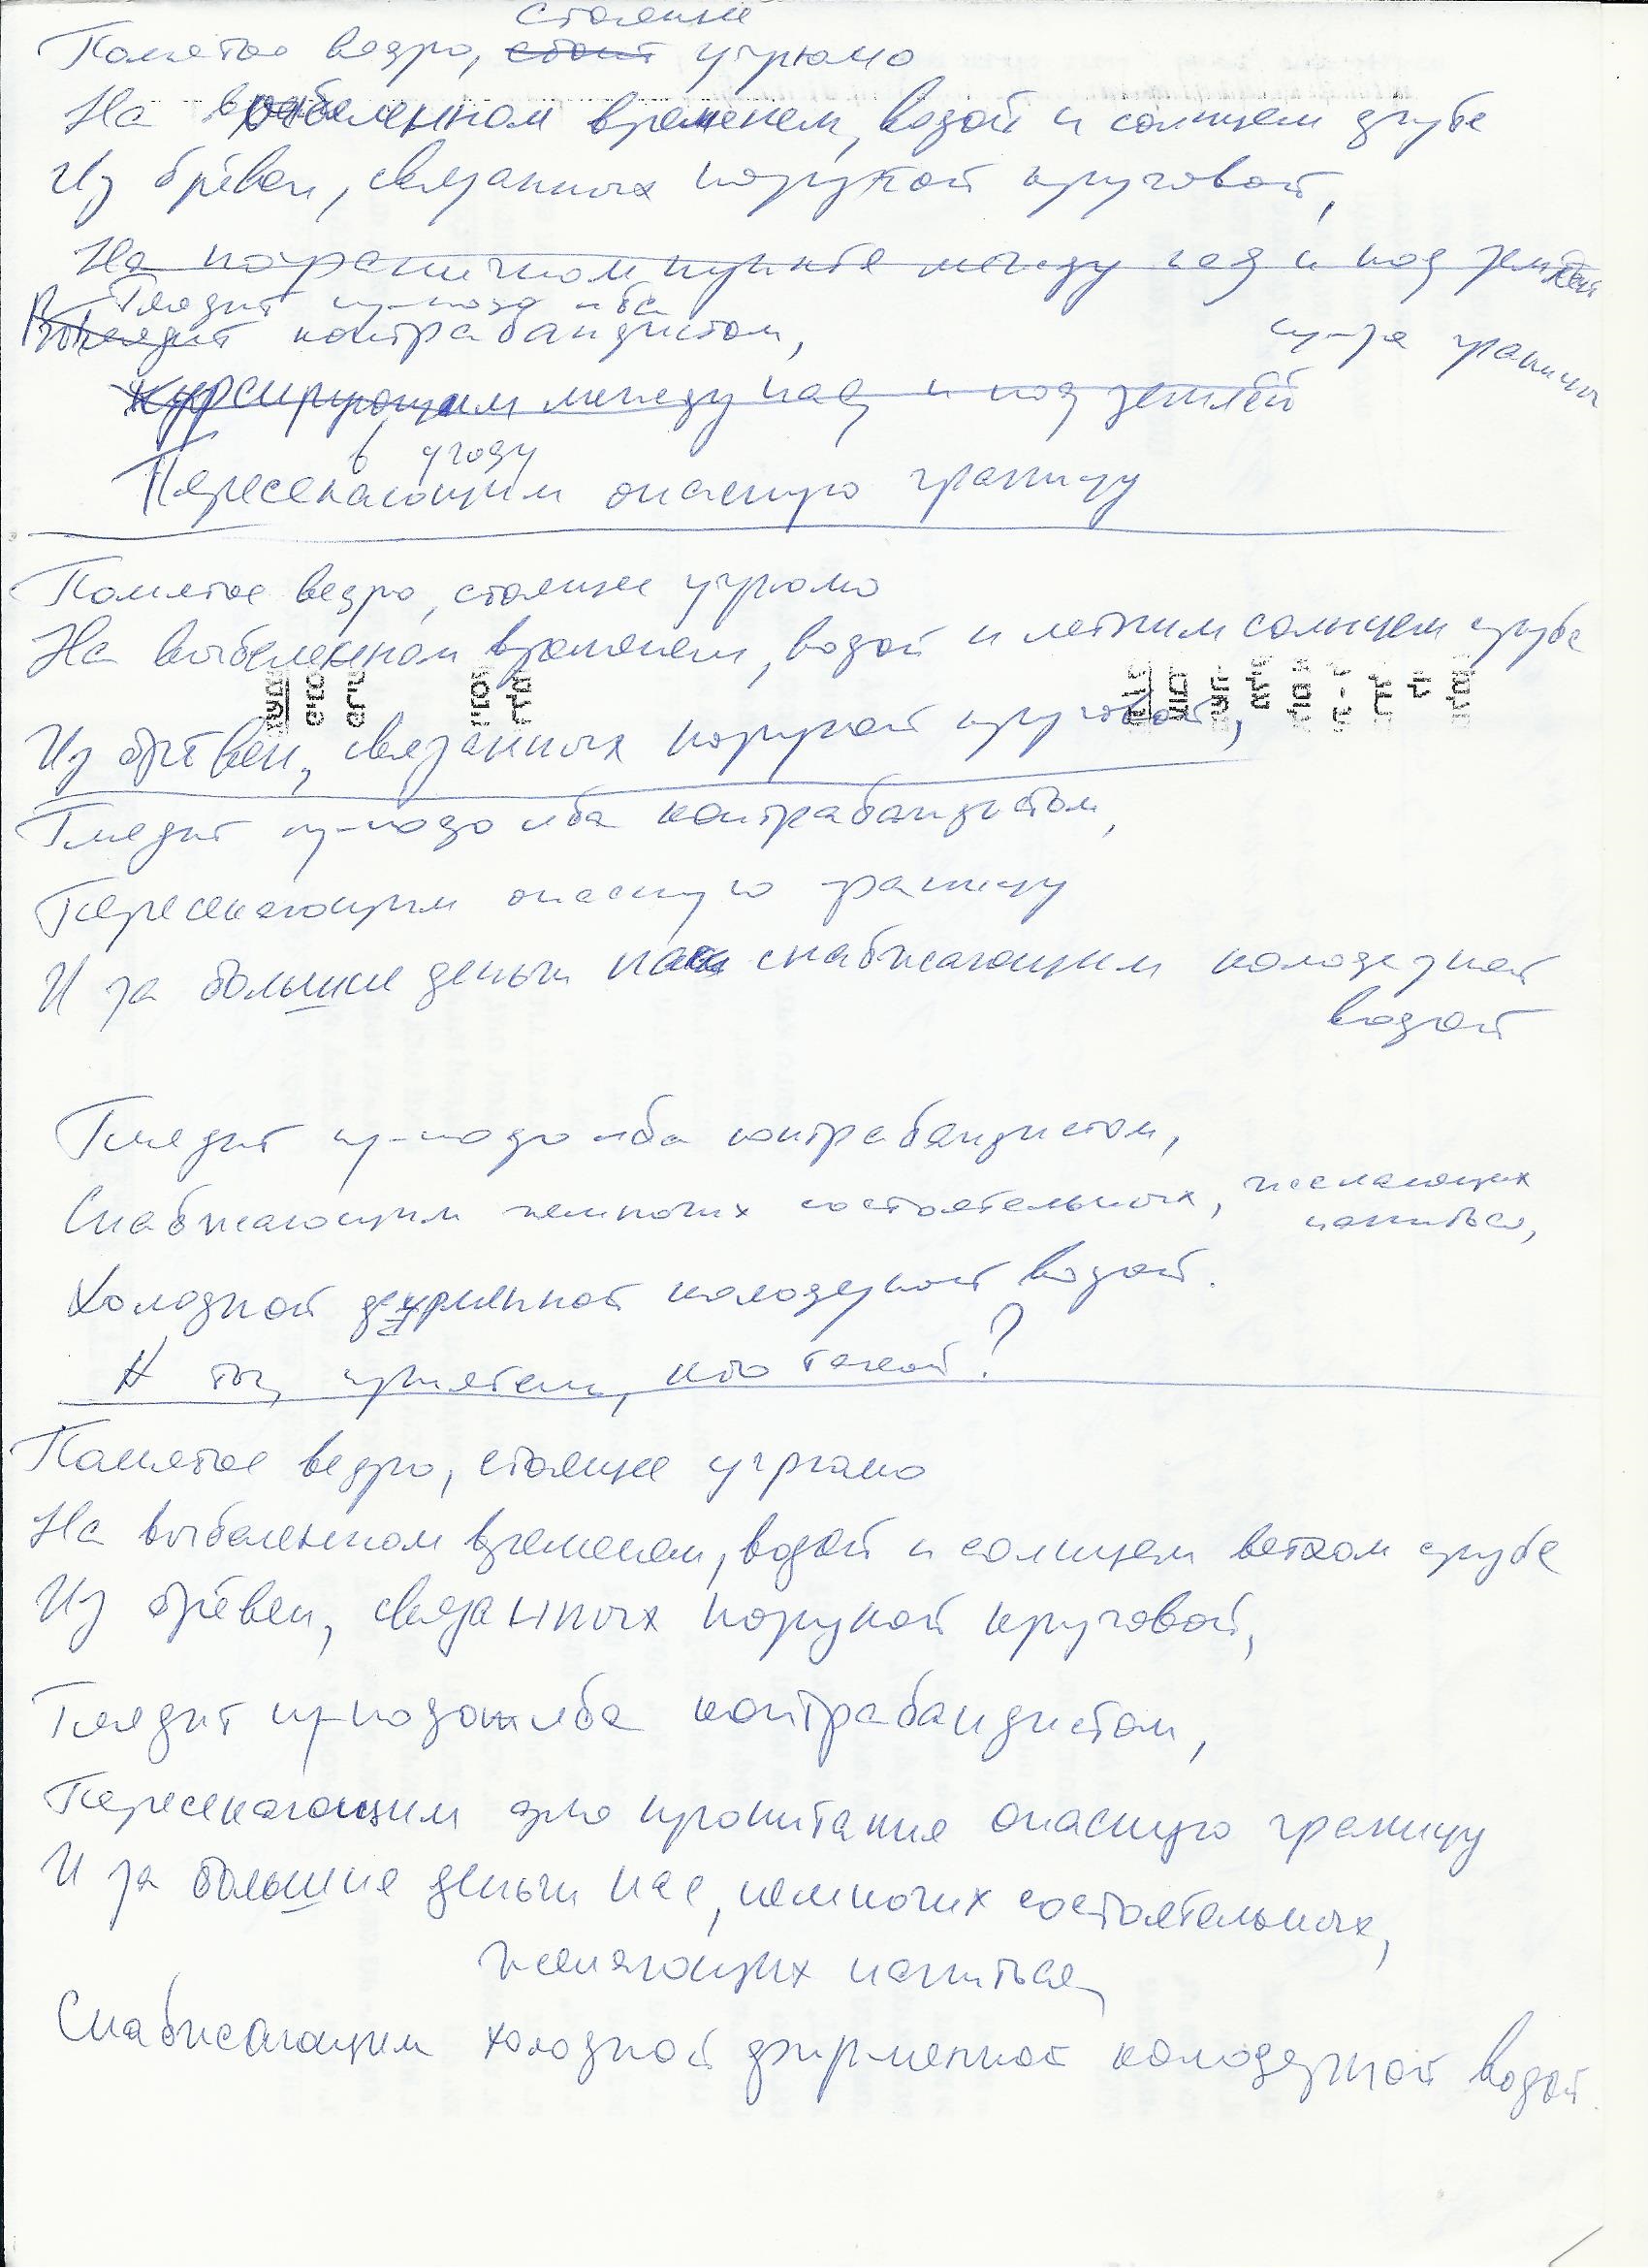 стоящее
Помятое ведро, стоит угрюмо
На выбеленном временем, водой и солнцем срубе
Из брёвен, связанных порукой круговой,
На пограничном пункте между над и под землёй
Глядит из-подо лба
Выглядит контрабандистом,
из-за границы
Курсирующим между над и под землёй
в угоду
Пересекающим опасную границу
Помятое ведро, стоящее угрюмо
На выбеленном временем, водой и летним солнцем срубе
Из брёвен, связанных порукой круговой,
Глядит из-подо лба контрабандистом,
Пересекающим опасную границу
И за большие деньги нас снабжающим колодезной
водой
Глядит из-подо лба контрабандистом,
Снабжающим немногих состоятельных, желающих
напиться,
Холодной фирменной колодезной водой.
А ты, приятель, кто такой?
Помятое ведро, стоящее угрюмо
На выбеленном временем, водой и солнцем ветхом срубе
Из брёвен, связанных порукой круговой,
Глядит из-подо лба контрабандистом,
Пересекающим для пропитания опасную границу
И за большие деньги нас, немногих состоятельных,
желающих напиться,
Снабжающим холодной фирменной колодезной водой.